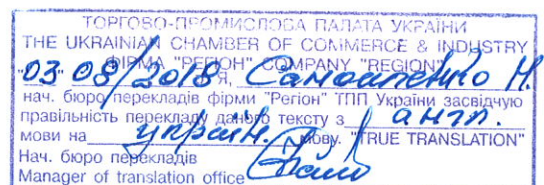 ТОРГОВО-ПРОМИСЛОВА ПАЛАТА УКРАЇНИ
THE UKRAINIAN CHAMBER OF COMMERCE & INDUSTRY
ФІРМА "РЕГІОН" COMPANY "REGION"
"03" 08/2018 Я, Самойленко Н.
нач. бюро перекладів фірми "Регіон" ТПП України засвідчую
правільність перекладу даного тексту з англ.
мови на україн. мову. "TRUE TRANSLATION"
Нач. бюро перекладів
Manager of translation office